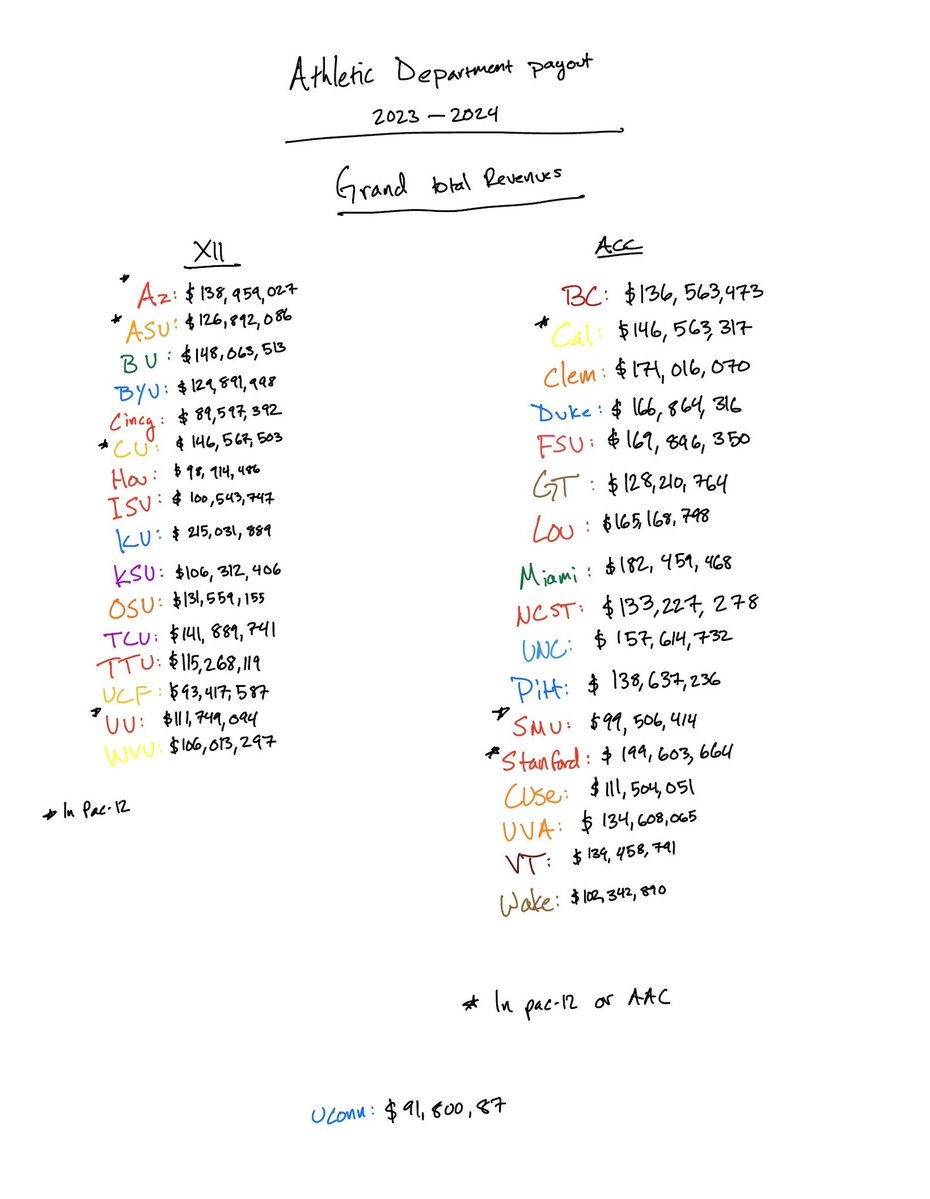 Athletic Department payout
2023 — 2024
Grand total Revenues
XII
* Az: $138,959,027
* ASU: $126,892,086
BU: $148,063,513
BYU: $129,891,998
Cincy: $89,597,392
* CU: $146,567,503
Hou: $98,914,486
ISU: $100,543,747
KU: $215,031,889
KSU: $106,312,406
OSU: $131,559,155
TCU: $141,889,741
TTU: $115,268,119
UCF: $93,417,587
* UU: $111,749,094
WVU: $106,013,297
* In Pac-12
ACC
BC: $136,563,473
* Cal: $146,563,317
Clem: $171,016,070
Duke: $166,864,316
FSU: $169,896,350
GT: $128,210,764
Lou: $165,168,798
Miami: $182,459,468
NCST: $133,227,278
UNC: $157,614,732
Pitt: $138,637,236
* SMU: $99,506,414
* Stanford: $199,603,664
CUse: $111,504,051
UVA: $134,608,065
VT: $139,458,791
Wake: $102,342,890
* In pac-12 or AAC
UConn: $91,800,87